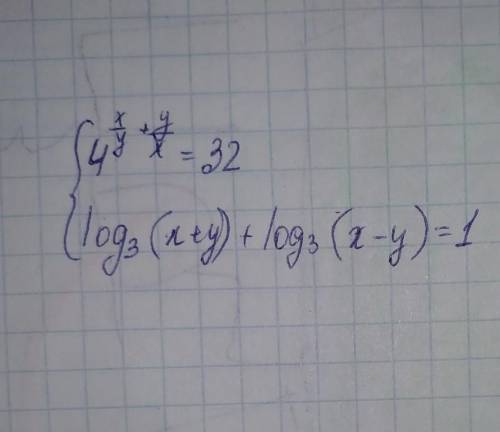 4^{\frac{x}{y}+\frac{y}{x}} = 32
log₃(x+y) + log₃(x-y) = 1